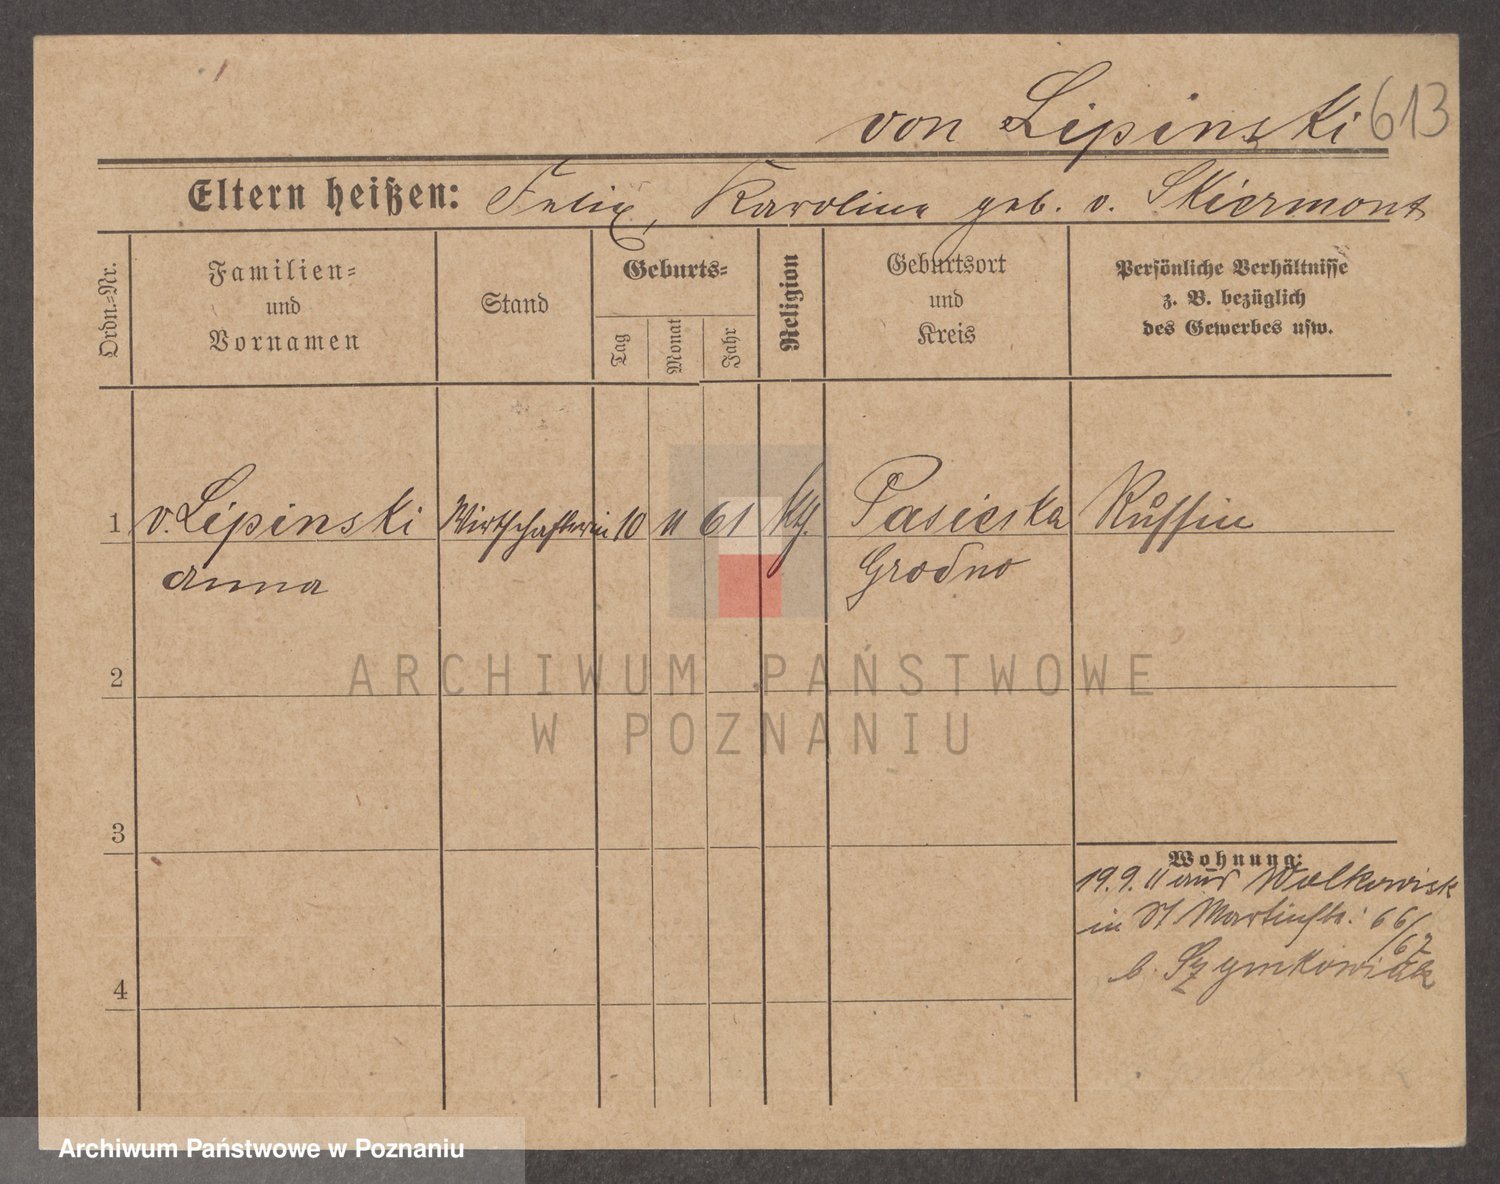 von Lipinski 613
Eltern heißen: Felix, Karoline geb. v. Skiermont
Ordn.-Nr.
Familien-
und
Vornamen
Stand
Geburts-
Tag
Monat
Jahr
Religion
Geburtsort
und
Kreis
Persönliche Verhältnisse
z. B. bezüglich
des Gewerbes usw.
1 v. Lipinski Wirtschafterin 10 11 61 Kth. Pasieska Russin
Anna Grodno
2
3
4
Wohnung:
19.9.11 aus Wolkowisk
in St Martinstr. 66/67
b. Szymkowiak
ARCHIWUM PAŃSTWOWE
W POZNANIU
Archiwum Państwowe w Poznaniu